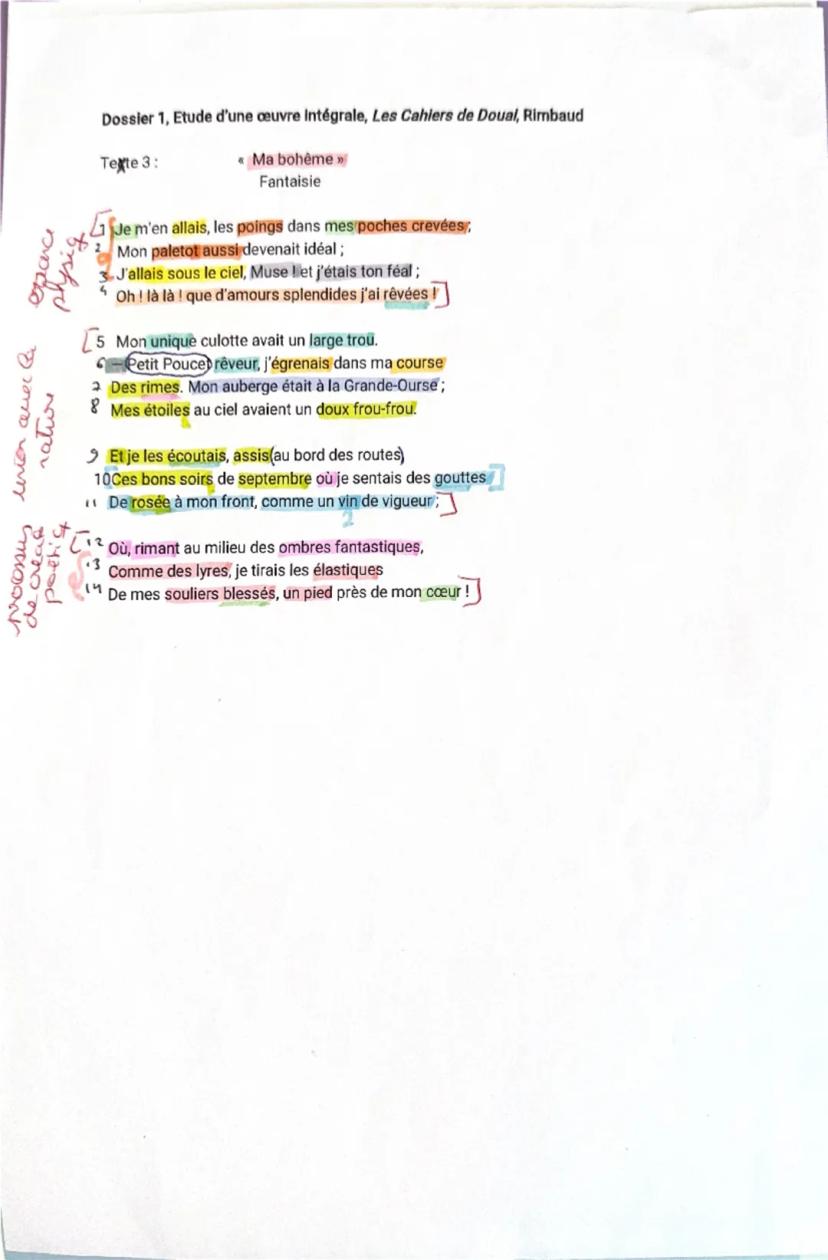 Dossier 1, Etude d'une œuvre intégrale, Les Cahiers de Douai, Rimbaud
Texte 3 :
« Ma bohème »
Fantaisie
espace physiq
1 Je m'en allais, les poings dans mes poches crevées ;
2 Mon paletot aussi devenait idéal ;
3 J'allais sous le ciel, Muse ! et j'étais ton féal ;
4 Oh ! là là ! que d'amours splendides j'ai rêvées !
union avec la nature
5 Mon unique culotte avait un large trou.
6 – Petit Poucet rêveur, j'égrenais dans ma course
7 Des rimes. Mon auberge était à la Grande-Ourse ;
8 Mes étoiles au ciel avaient un doux frou-frou.
9 Et je les écoutais, assis au bord des routes,
10 Ces bons soirs de septembre où je sentais des gouttes
11 De rosée à mon front, comme un vin de vigueur ;
de créat
12 Où, rimant au milieu des ombres fantastiques,
13 Comme des lyres, je tirais les élastiques
14 De mes souliers blessés, un pied près de mon cœur !